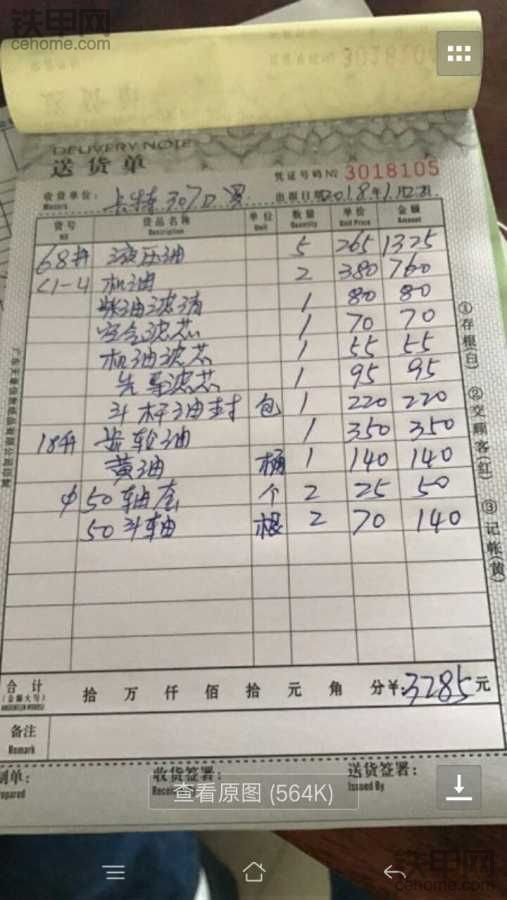 铁甲网
cehome.com
DELIVERY NOTE
送货单
凭证号码 № 3018105
收货单位: 卡特307D
出报日期 2018年1.12.21
货号 货品名称 单位 数量 单价 金额
No Description Unit Quantity Unit Price Amount
68# 液压油 5 265 1325
CI-4 机油 2 380 760
柴油滤清 1 80 80
空气滤芯 1 70 70
机油滤芯 1 55 55
先导滤芯 1 95 95
斗杆油封 包 1 220 220
18升 齿轮油 1 350 350
黄油 桶 1 140 140
φ50轴座 个 2 25 50
50斗轴 根 2 70 140
①存根(白) ②交顾客(红) ③记帐(黄)
合计 拾 万 仟 佰 拾 元 角 分 ¥:3285元
(金额大写)
备注
Remark
制单: 收货签署: 送货签署:
Prepared Issued By
查看原图 (564K)
铁甲网
cehome.com